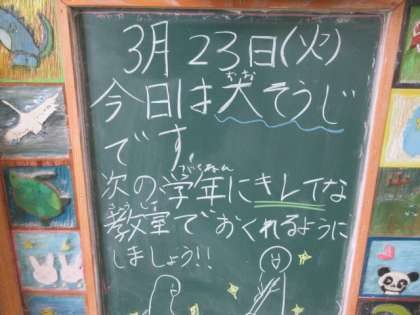 3月23日(火)
今日は大そうじ
です。
次の学年にキレイな
教室でおくれるように
しましょう!!